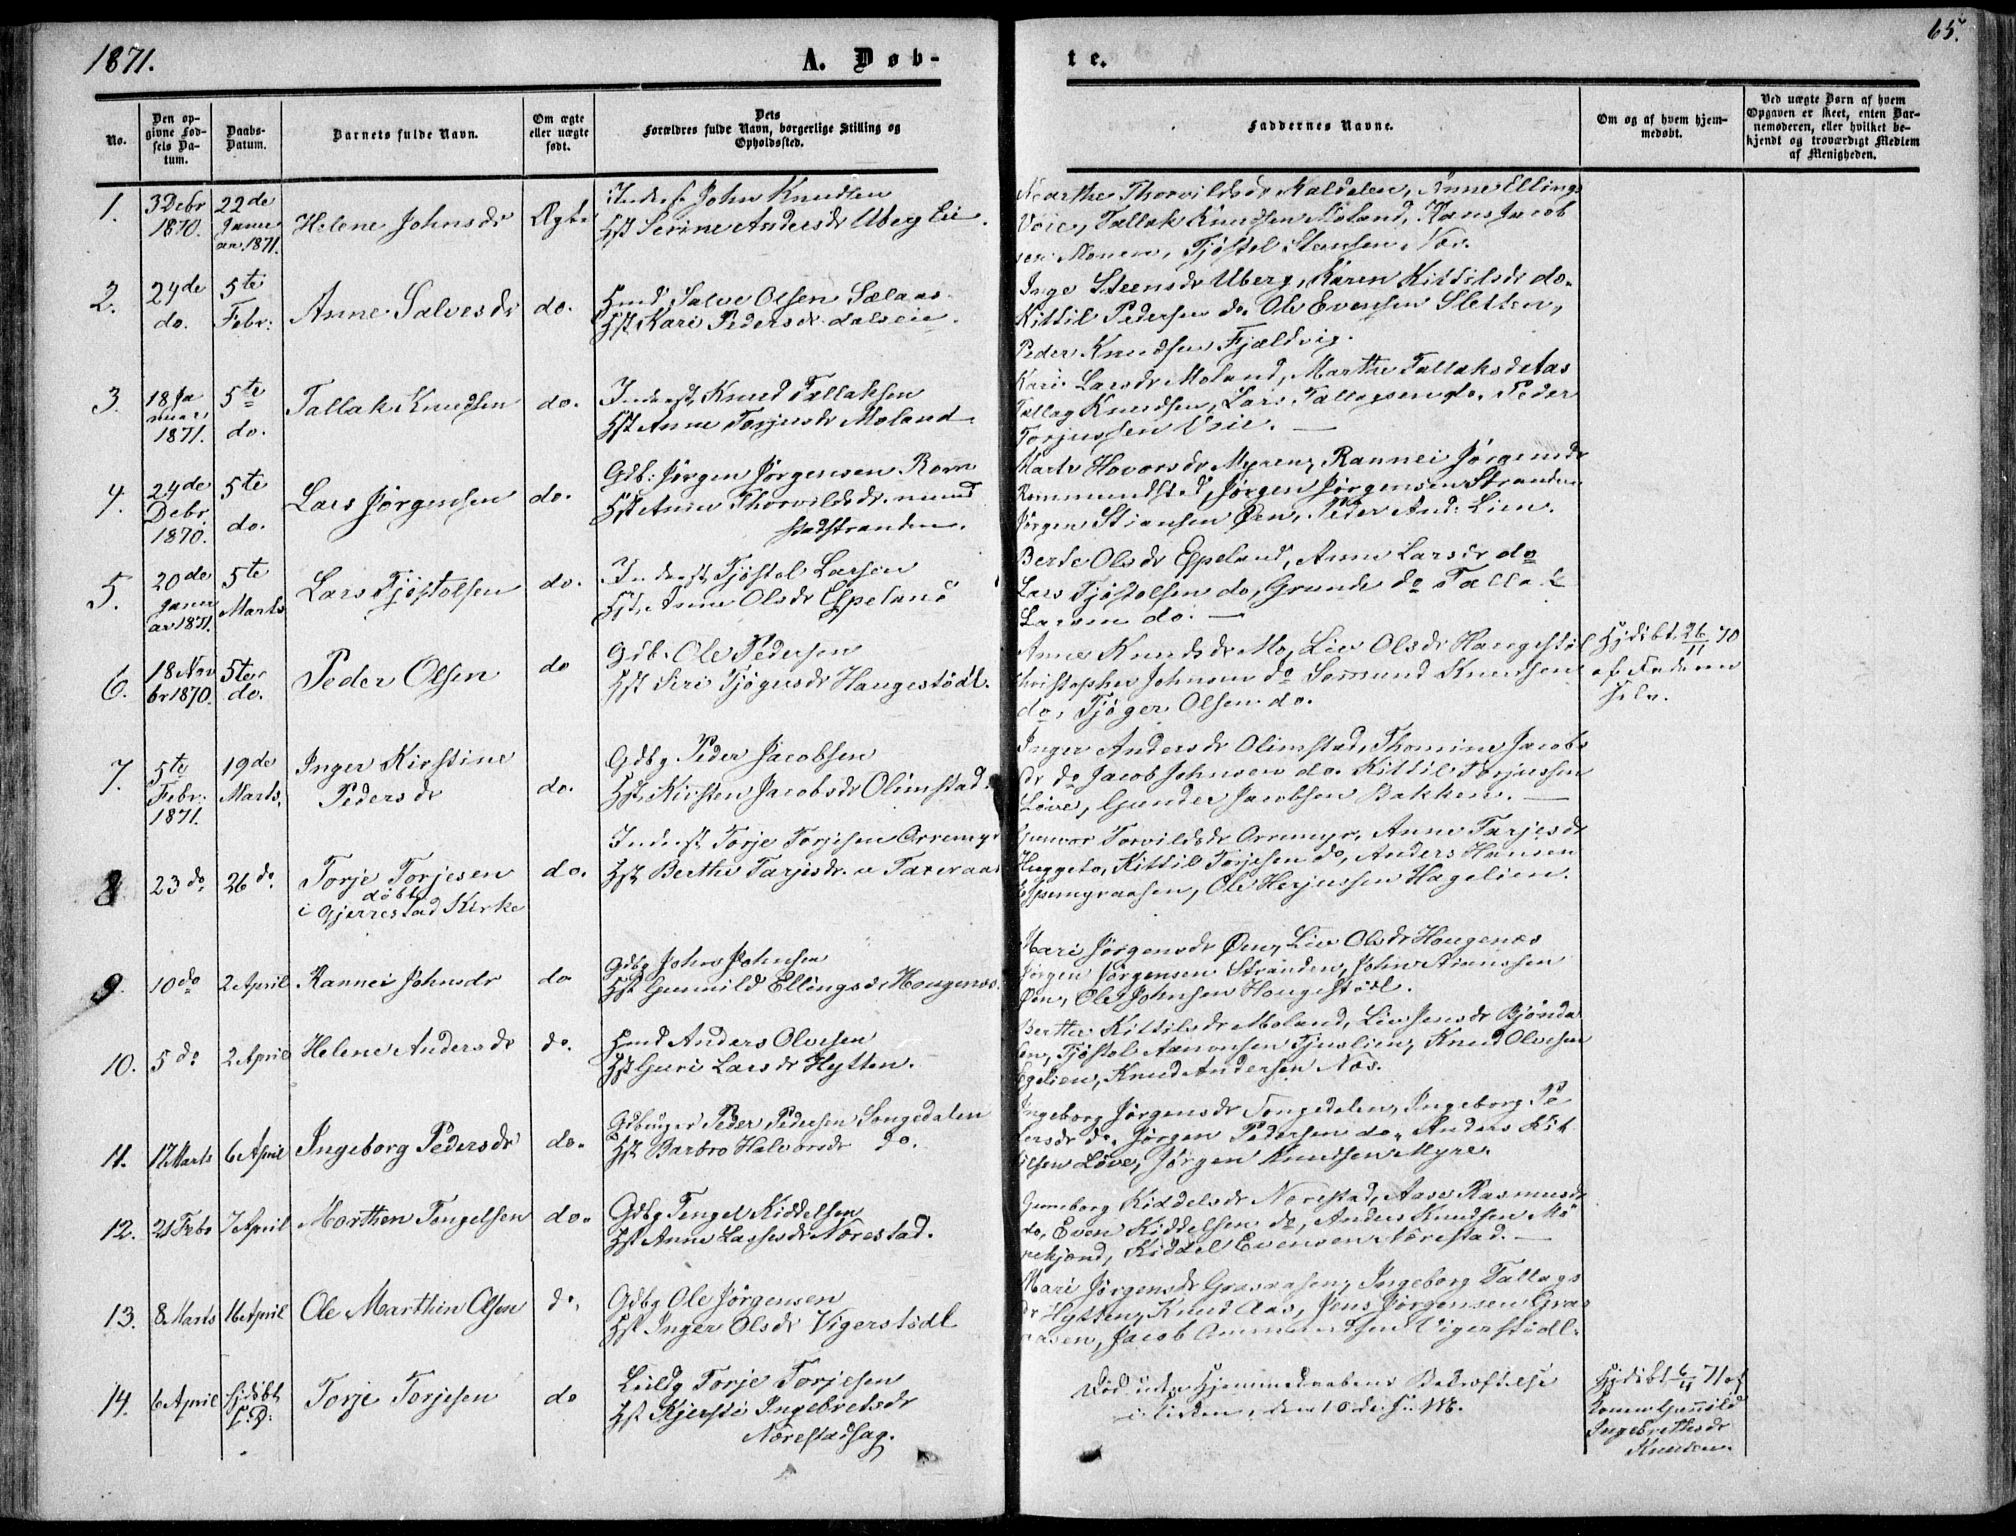 1871.
A. Døb-
te.
65.
No.
Den op-
givne Fød-
sels Da-
tum.
Daabs-
Datum.
Barnets fulde Navn.
Om ægte
eller uægte
født.
Dets
Forældres fulde Navn, borgerlige Stilling og
Opholdssted.
Faddernes Navne.
Om og af hvem hjem-
medøbt.
Ved uægte Børn af hvem
Opgaven er skeet, enten Bar-
nemoderen, eller hvilket be-
kjendt og troværdigt Medlem
af Menigheden.
1.
3 Debr
1870.
22de
Janu
ar 1871.
Helene Johnsdr
Ægte
John Knudsen
Hst Serine Andersdr Uberg Eie
Marthe Thorvildsdr Kaldalen, Anne Ellings
Veie, Tallak Knudsen Moland, Hans Jacob
sen Monen, Tjøstel Stensen Næs.
2.
24de
do.
5te
Febr:
Anne Salvesdr
do.
Hmd Salve Olsen Sælaas
Hst Kari Pedersdr dalseie.
Inge Steensdr Uberg, Karen Kittilsdr do.
Kittil Pedersen do. Ole Evensen Sletten,
Peder Knudsen Fjældvig.
3.
18 Ja
nuar
1871.
5te
do.
Tallak Knudsen
do.
Inderst Knud Tallaksen
Hst Anne Torjusdr Moland
Kari Larsdr Moland, Marthe Tallaksdr Aas
Tallag Knudsen, Lars Tallagsen do. Peder
Torjussen Veie.
4.
24de
Debr
1870.
5te
do.
Lars Jørgensen
do.
Gdb: Jørgen Jørgensen Rom
Hst Anne Thorvildsdr. mund
stadstranden.
Marte Hovorsdr Myren, Rannei Jørgensdr
Rommundstad, Jørgen Jørgensen Stranden
Jørgen Stiansen Øen, Peder And: Lien.
5.
20de
Janu
ar 1871.
5te
Marts
Lars Tjøstolsen
do.
Inderst Tjøstel Larsen
Hst. Anne Olsdr Espeland
Berte Olsdr Espeland, Anne Larsdr do
Lars Tjøstolsen do, Grunde do Tallak
Larsen do.
6.
18 Nov
br 1870.
5te
do.
Peder Olsen
do
Gdb. Ole Pedersen
Hst Siri Tjøgersdr Haugestødl.
Anne Knudsdr Mo, Liv Olsdr Haugestøl
Christopher Johnsen do Sørmund Knudsen
do, Tjøger Olsen do.
Hjdøbt 26/11 70
af Faderen
selv.
7.
5te
Febr:
1871.
19de
Marts.
Inger Kirstine
Pedersdr
do.
Gdbg Peder Jacobsen
Hst. Kirsten Jacobsdr Olimstad.
Inger Andersdr Olimstad, Thomine Jacobs
dr do Jacob Johnsen do. Kittil Torjussen
Løve, Gunder Jacobsen Bakken.
8
23 do
26 do.
Torje Torjesen
døbt
i Gjerrestad Kirke
do.
Inderst Torje Torjesen Orremyr
Hst. Berthe Tarjesdr.
Gunvor Torvildsdr Orremyr, Anne Tarjesdr
Huggeto, Kittil Torjesen do, Anders Hansen
Espemyraasen, Ole Herjussen Hagelien.
9.
10 do
2 April
Rannei Johnsdr
do
Gdbg John Johnsen
Hst Gunnild Ellingsdr Hougenæs.
Mari Jørgensdr Øen, Liv Olsdr Hougenæs
Jørgen Jørgensen Stranden, John
Øen, Ole Johnsen Haugestødl.
10.
5 do
2 April
Helene Andersdr
do.
Hmd Anders Olvesen
Hst Guri Larsdr Hytten.
Berthe Kittilsdr Moland, Liv Jensdr Bjønda
len, Tjøstel Aanonsen Tjuslien, Knud Olvesen
Egelien, Knud Andersen Næs.
11.
17 Marts
6 April
Ingeborg Pedersdr
do.
Gdbruger Peder Pedersen Songedalen
Hst Barbro Halvorsdr do.
Ingeborg Jørgensdr Songedalen, Ingeborg Pe
dersdr do. Jørgen Pedersen do. Anders Kit
tilsen Løve, Jørgen Knudsen Myre.
12.
21 Febr
7 April
Morthen Tengelsen
do.
Gdbg Tengel Kiddelsen
Hst Anne Lassesdr Nærestad.
Gunborg Kiddelsdr Nærestad, Aase Rasmusdr
do, Even Kiddelsen do, Anders Knudsen Mø
rekjønd, Kiddel Evensen Nærestad.
13.
8 Marts
16 April
Ole Marthin Olsen
do.
Gdbg Ole Jørgensen
Hst Inger Olsdr Vigerstødl
Mari Jørgensdr Grasaasen, Ingeborg Tallags
dr Hytten, Knud Aas, Jens Jørgensen Gras
aasen, Jacob Ommundsen Vigerstødl.
14.
6 April
Hjdøbt
Torje Torjesen
do
Leildg Torje Torjesen
Hst Kjersti Ingebretsdr
Nærestadsag.
Død uden Hjemmedaabens Bekræftelse
i Kirken, den
Hjdøbt 6/4 71 af
Konen Gunnild
Ingebrethsdr
Knudsen.